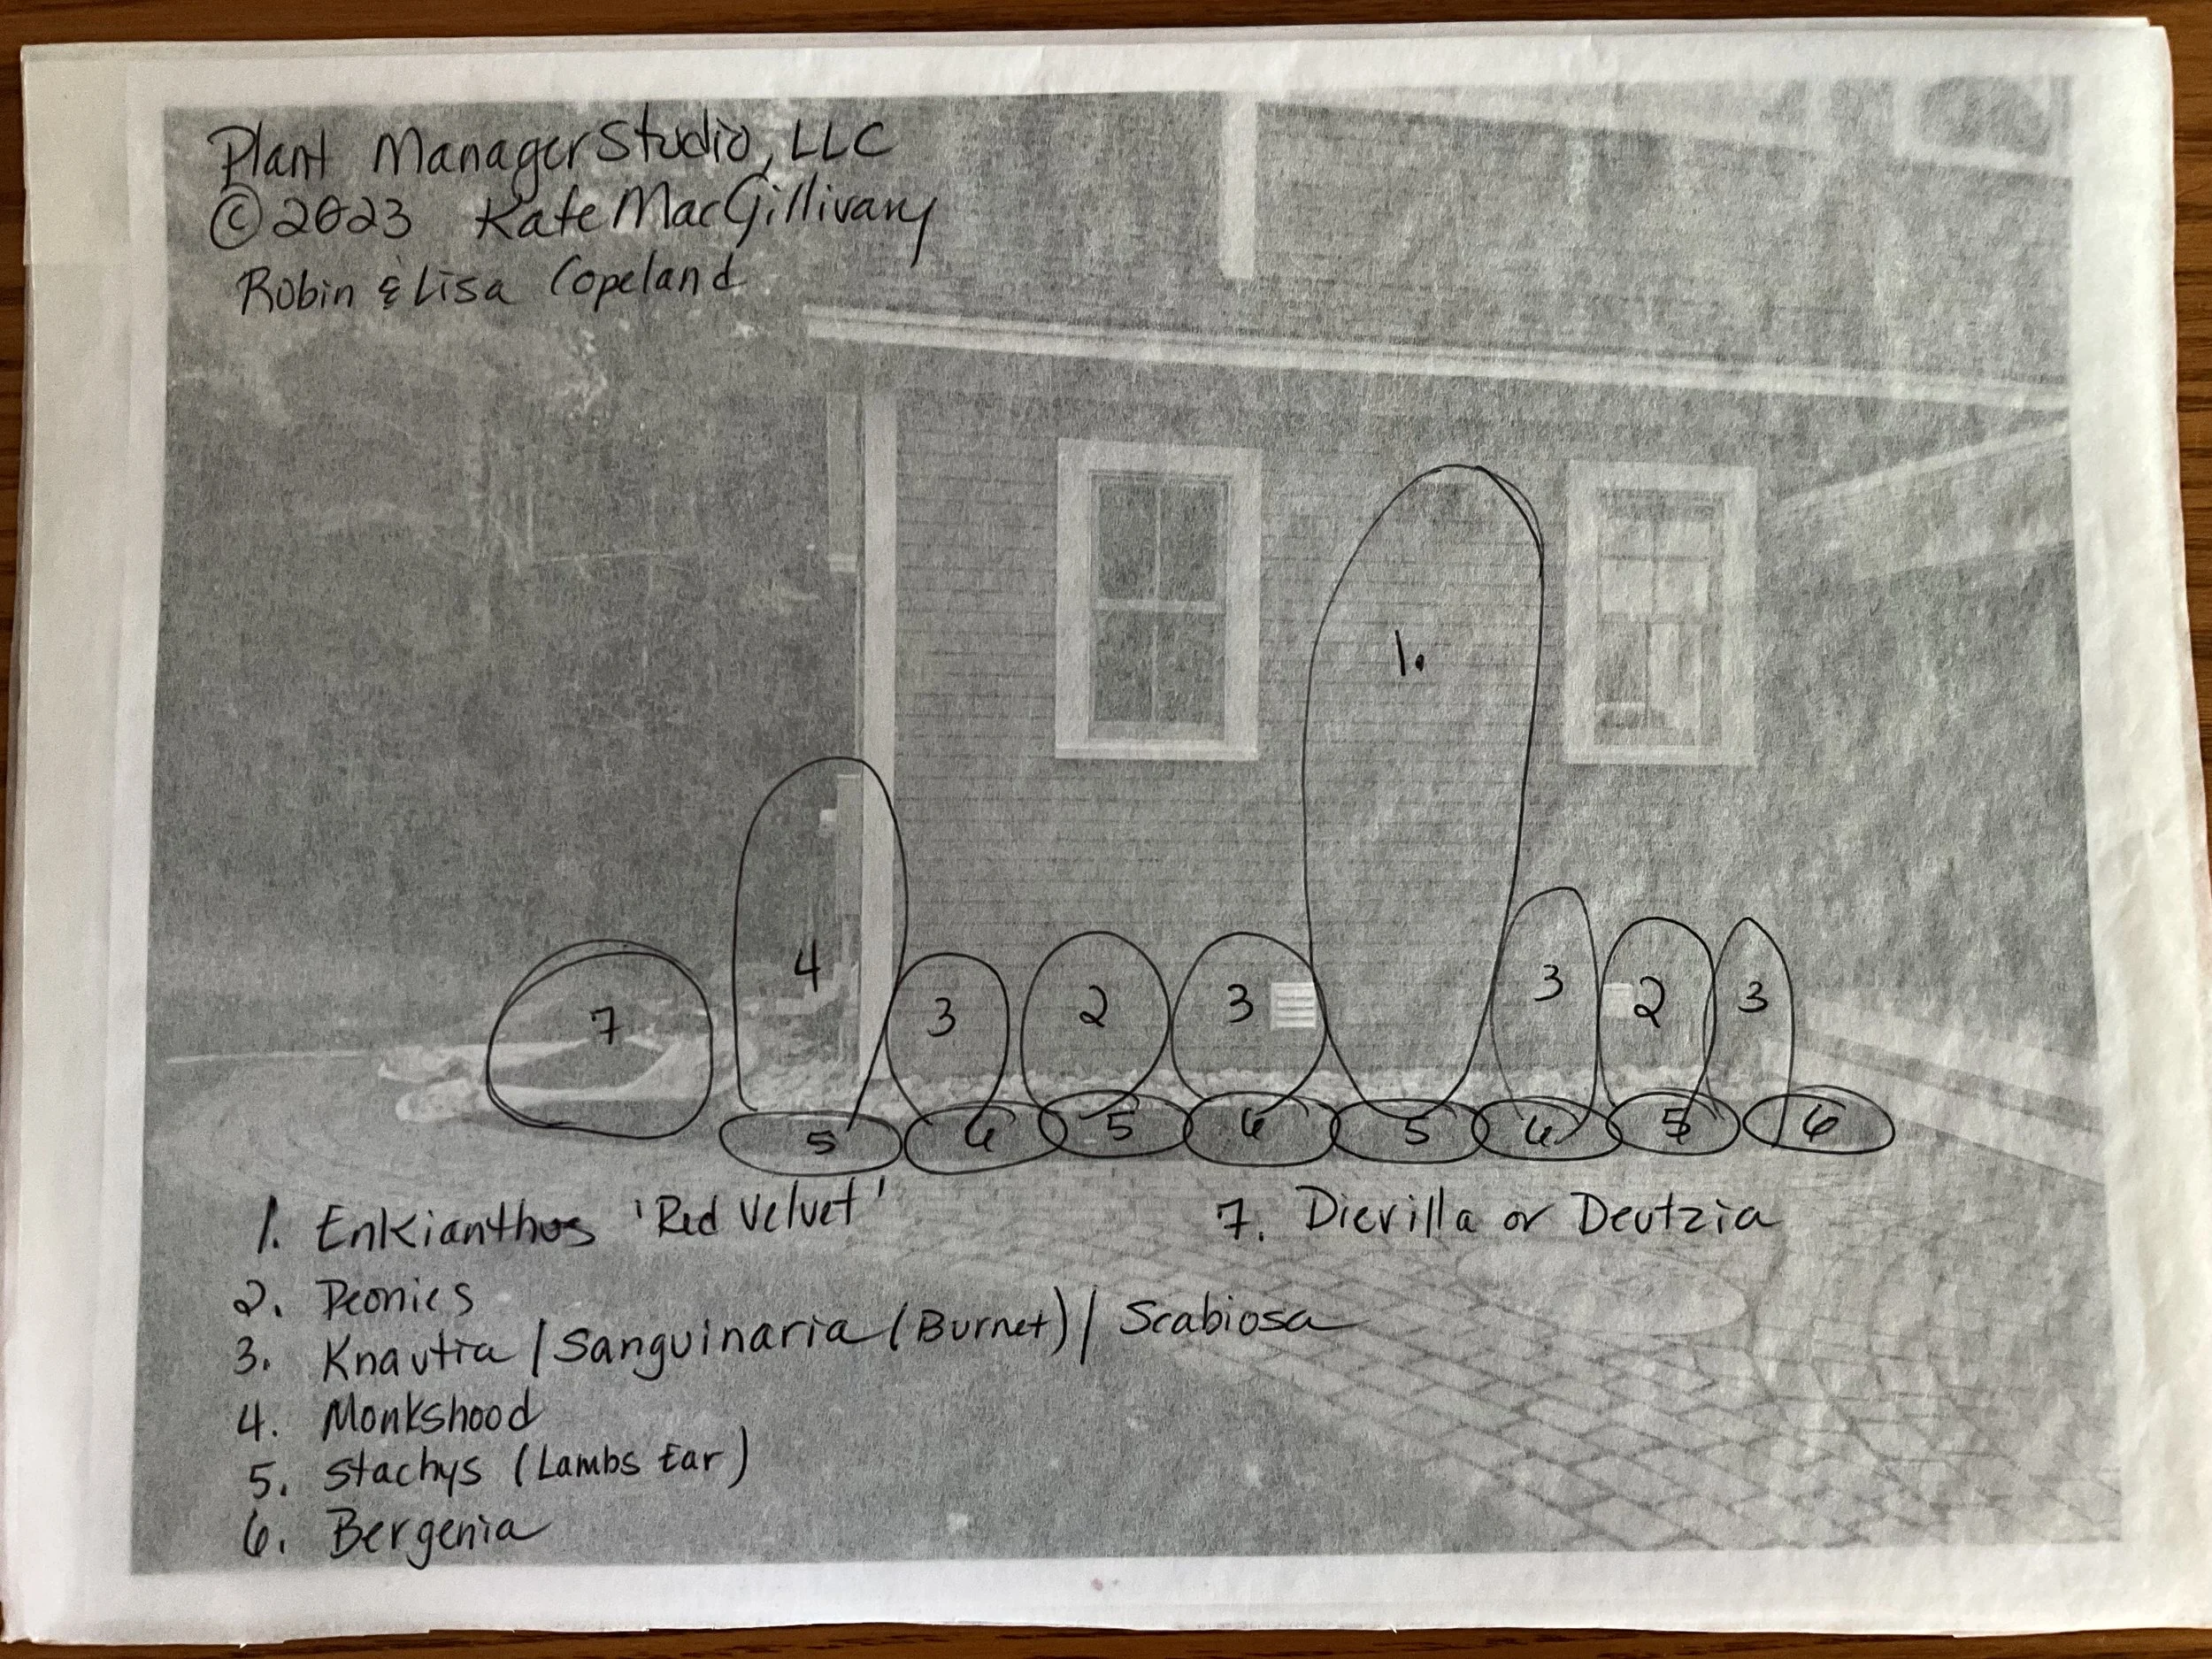 Plant Manager Studio, LLC
© 2023 Kate MacGillivary
Robin & Lisa Copeland
1.
4
7
3
2
3
3
2
3
5
6
5
6
5
6
5
6
1. Enkianthus 'Red Velvet'
7. Diervilla or Deutzia
2. Peonies
3. Knautia / Sanguinaria (Burnet) / Scabiosa
4. Monkshood
5. Stachys (Lambs Ear)
6. Bergenia